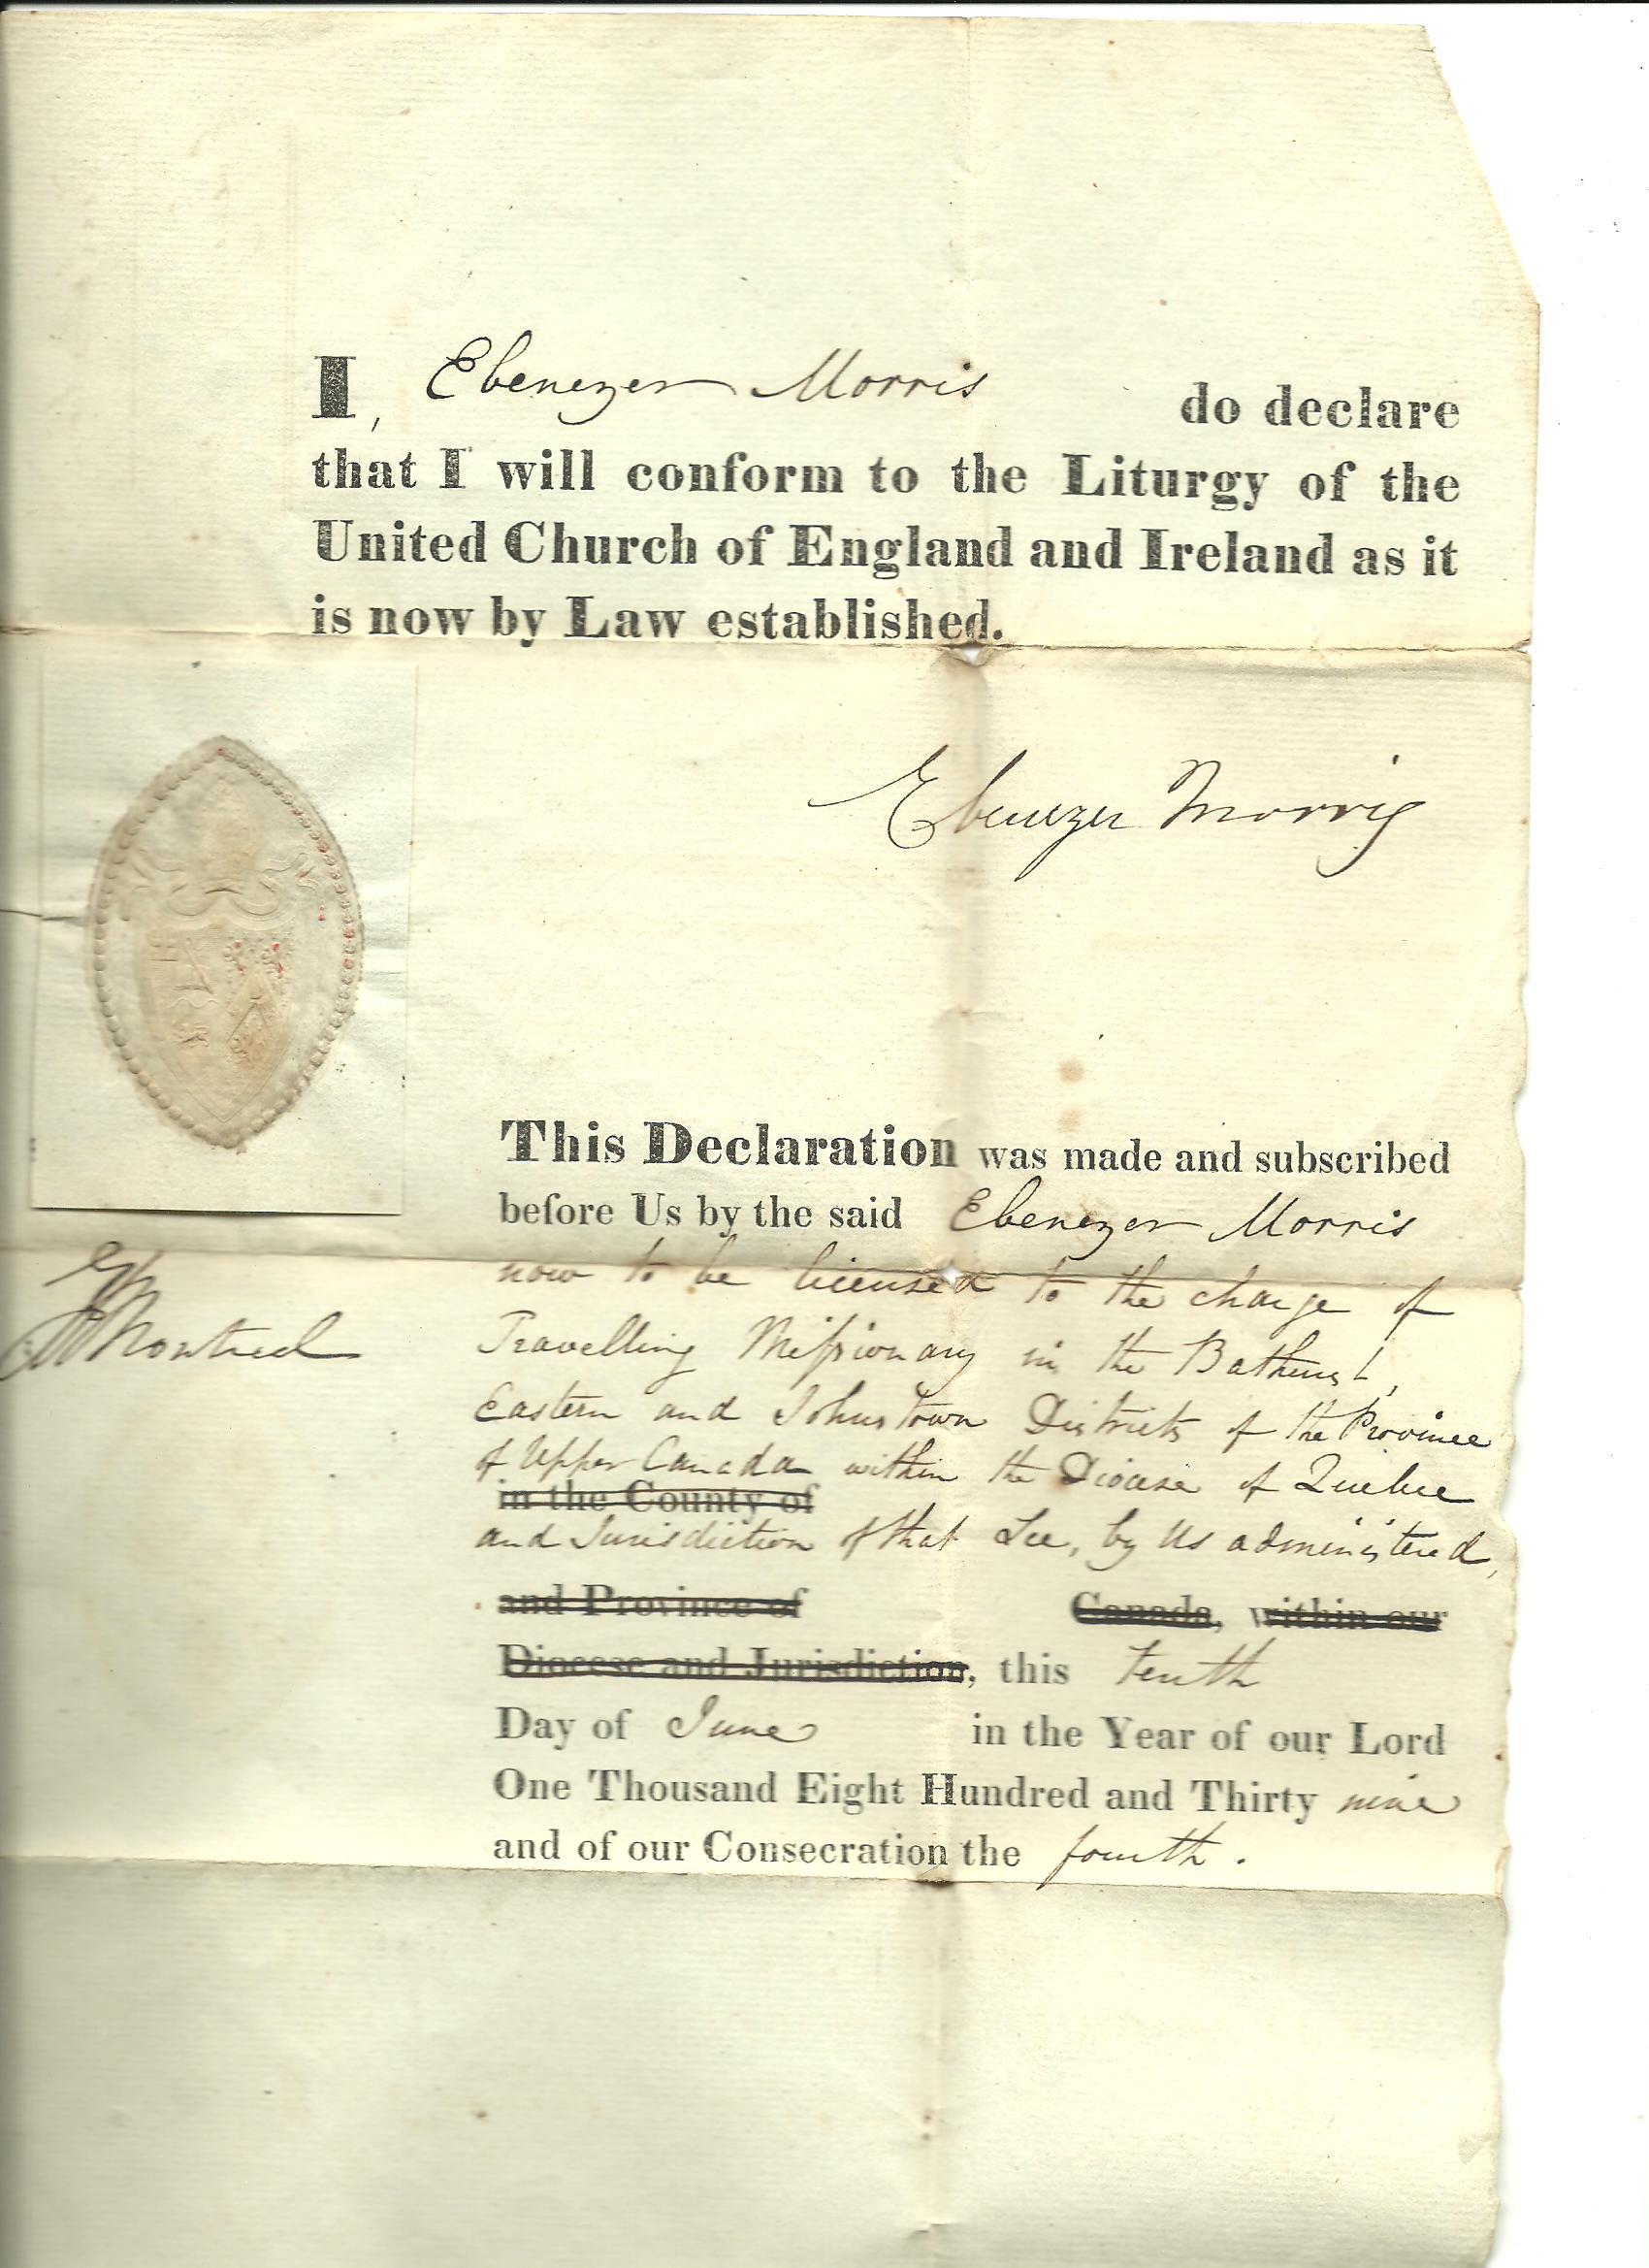 I, Ebenezer Morris do declare
that I will conform to the Liturgy of the
United Church of England and Ireland as it
is now by Law established.
Ebenezer Morris
This Declaration was made and subscribed
before Us by the said Ebenezer Morris
now to be licensed to the charge of
Travelling Missionary in the Bathurst,
Eastern and Johnstown Districts of the Province
of Upper Canada within the Diocese of Quebec
in the County of
and Jurisdiction of that See, by Us administered,
and Province of Canada, within our
Diocese and Jurisdiction, this tenth
Day of June in the Year of our Lord
One Thousand Eight Hundred and Thirty nine
and of our Consecration the fourth.
Montreal